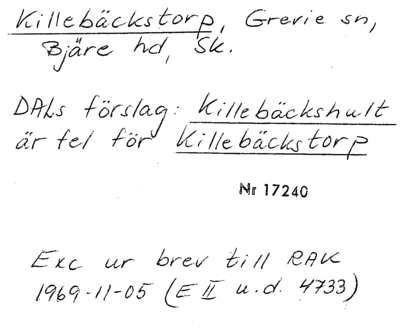 Killebäckstorp, Grevie sn,
Bjäre hd, Sk.
DALs förslag: Killebäckshult
är fel för Killebäckstorp
Nr 17240
Exc ur brev till RAK
1969-11-05 (E II u.d. 4733)